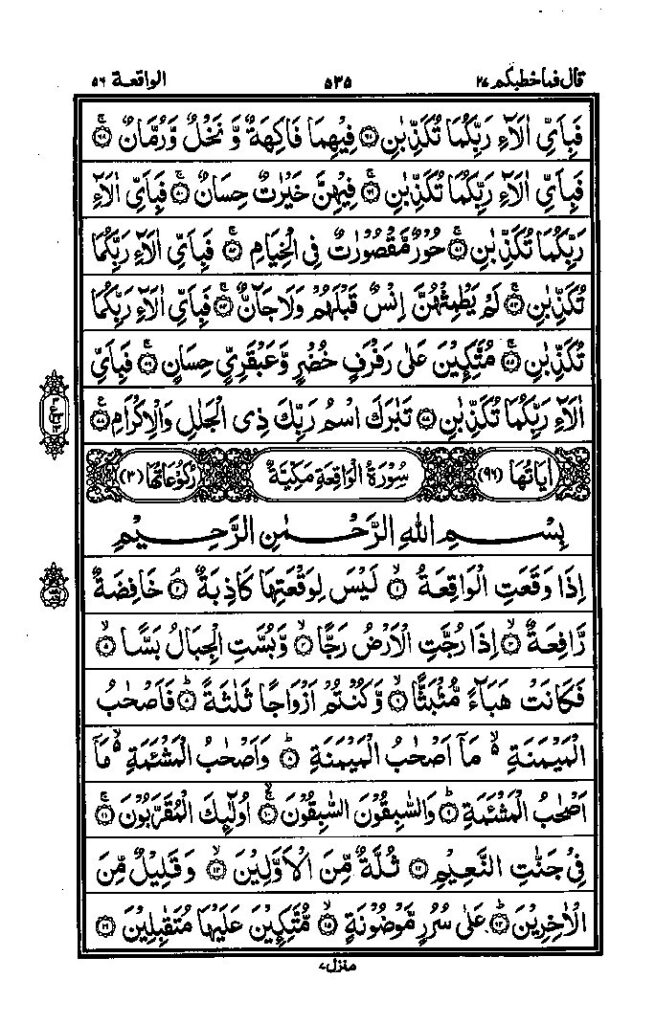 قال فما خطبكم ٢٧
٥٣٥
الواقعة ٥٦
فَبِاَيِّ اٰلَآءِ رَبِّكُمَا تُكَذِّبٰنِ ۝٦٧ فِيْهِمَا فَاكِهَةٌ وَّ نَخْلٌ وَّرُمَّانٌ ۝٦٨ۚ
فَبِاَيِّ اٰلَآءِ رَبِّكُمَا تُكَذِّبٰنِ ۝٦٩ۚ فِيْهِنَّ خَيْرٰتٌ حِسَانٌ ۝٧٠ۚ فَبِاَيِّ اٰلَآءِ
رَبِّكُمَا تُكَذِّبٰنِ ۝٧١ۚ حُوْرٌ مَّقْصُوْرٰتٌ فِي الْخِيَامِ ۝٧٢ۚ فَبِاَيِّ اٰلَآءِ رَبِّكُمَا
تُكَذِّبٰنِ ۝٧٣ۚ لَمْ يَطْمِثْهُنَّ اِنْسٌ قَبْلَهُمْ وَلَا جَآنٌّ ۝٧٤ۚ فَبِاَيِّ اٰلَآءِ رَبِّكُمَا
تُكَذِّبٰنِ ۝٧٥ۚ مُتَّكِـِٕيْنَ عَلٰى رَفْرَفٍ خُضْرٍ وَّعَبْقَرِيٍّ حِسَانٍ ۝٧٦ۚ فَبِاَيِّ
اٰلَآءِ رَبِّكُمَا تُكَذِّبٰنِ ۝٧٧ تَبٰرَكَ اسْمُ رَبِّكَ ذِي الْجَلٰلِ وَالْاِكْرَامِ ۝٧٨
اٰيَاتُهَا (٩٦)
سُوْرَةُ الْوَاقِعَةِ مَكِّيَّةٌ
رُكُوْعَاتُهَا (٣)
بِسْمِ اللّٰهِ الرَّحْمٰنِ الرَّحِيْمِ
اِذَا وَقَعَتِ الْوَاقِعَةُ ۝١ۙ لَيْسَ لِوَقْعَتِهَا كَاذِبَةٌ ۝٢ۘ خَافِضَةٌ
رَّافِعَةٌ ۝٣ۙ اِذَا رُجَّتِ الْاَرْضُ رَجًّا ۝٤ۙ وَّبُسَّتِ الْجِبَالُ بَسًّا ۝٥ۙ
فَكَانَتْ هَبَآءً مُّنْۢبَثًّا ۝٦ۙ وَّكُنْتُمْ اَزْوَاجًا ثَلٰثَةً ۝٧ؕ فَاَصْحٰبُ
الْمَيْمَنَةِ ۙ۬ مَآ اَصْحٰبُ الْمَيْمَنَةِ ۝٨ؕ وَاَصْحٰبُ الْمَشْـَٔمَةِ ۙ۬ مَآ
اَصْحٰبُ الْمَشْـَٔمَةِ ۝٩ؕ وَالسّٰبِقُوْنَ السّٰبِقُوْنَ ۝١٠ۚۙ اُولٰٓئِكَ الْمُقَرَّبُوْنَ ۝١١ۚ
فِيْ جَنّٰتِ النَّعِيْمِ ۝١٢ ثُلَّةٌ مِّنَ الْاَوَّلِيْنَ ۝١٣ۙ وَقَلِيْلٌ مِّنَ
الْاٰخِرِيْنَ ۝١٤ؕ عَلٰى سُرُرٍ مَّوْضُوْنَةٍ ۝١٥ۙ مُّتَّكِـِٕيْنَ عَلَيْهَا مُتَقٰبِلِيْنَ ۝١٦
منزل ٧